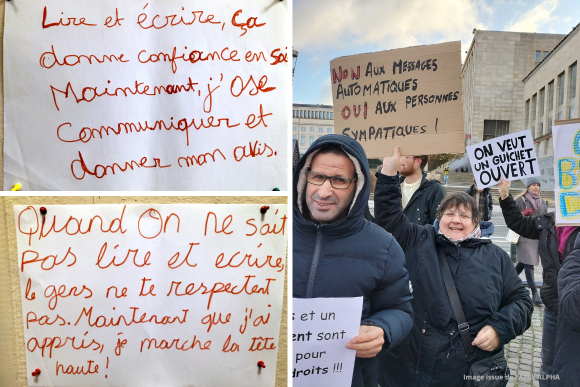 Lire et écrire, ça
donne confiance en soi
Maintenant, j'ose
communiquer et
donner mon avis.
Quand On ne sait
pas lire et ecrire,
le gens ne te respectent
pas. Maintenant que j'ai
appris, je marche la tête
haute !
NON AUX MESSAGES
AUTOMATIQUES
OUI AUX PERSONNES
SYMPATIQUES !
ON VEUT
UN GUICHET
OUVERT
s et un
ent sont
pour
droits !!!